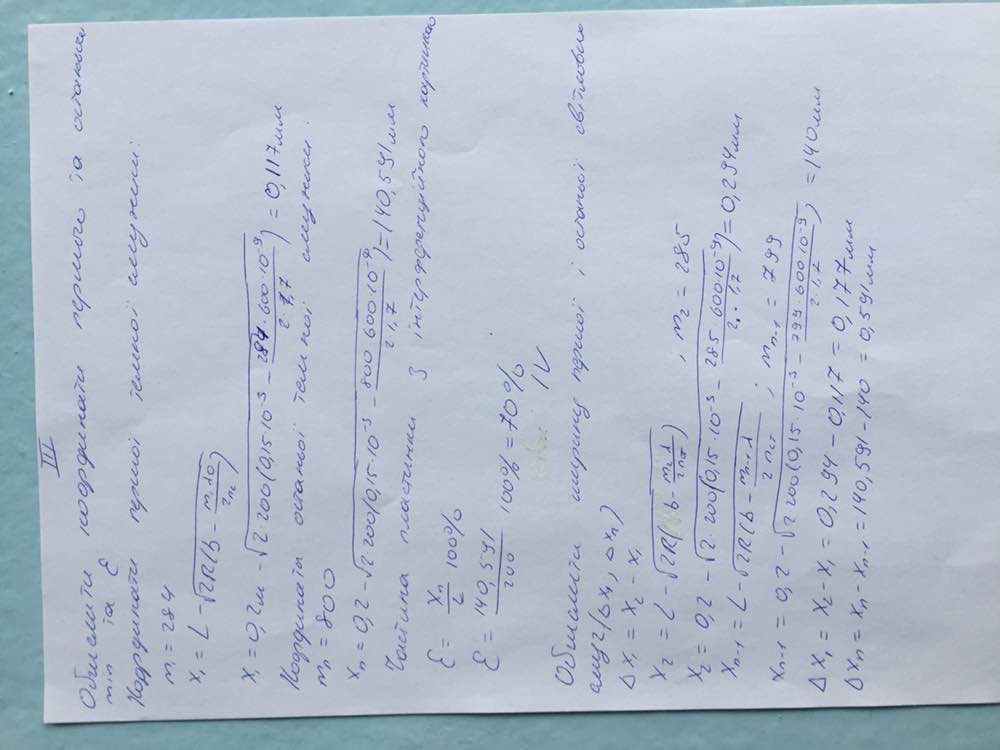 III
Обчислити координати першого та останнього
min та ε
Координати першої темної смужки:
m = 284
x₁ = L - √2R(b - m₁λ0/2nc)
x₁ = 0,2м - √2·200(0,15·10⁻³ - 284·600·10⁻⁹/2·1,7) = 0,117мм
Координата останої темної смужки.
mn = 800
xn = 0,2 - √2·200(0,15·10⁻³ - 800·600·10⁻⁹/2·1,7) = 140,591мм
Частина пластинки з інтерференційного картинки
ε = xn/L 100%
ε = 140,591/200 100% = 70%
IV
Обчислити ширину першої і останої світлових
смуг (Δx₁, Δxn)
Δx₁ = x₂ - x₁
x₂ = L - √2R(b - m₂λ/2nσ) ; m₂ = 285
x₂ = 0,2 - √2·200(0,15·10⁻³ - 285·600·10⁻⁹/2·1,7) = 0,294мм
xn-1 = L - √2R(b - mn-1λ/2nст) ; mn-1 = 799
xn-1 = 0,2 - √2·200(0,15·10⁻³ - 799·600·10⁻⁹/2·1,7) = 140мм
Δx₁ = x₂ - x₁ = 0,294 - 0,117 = 0,177мм
Δxn = xn - xn-1 = 140,591 - 140 = 0,591мм